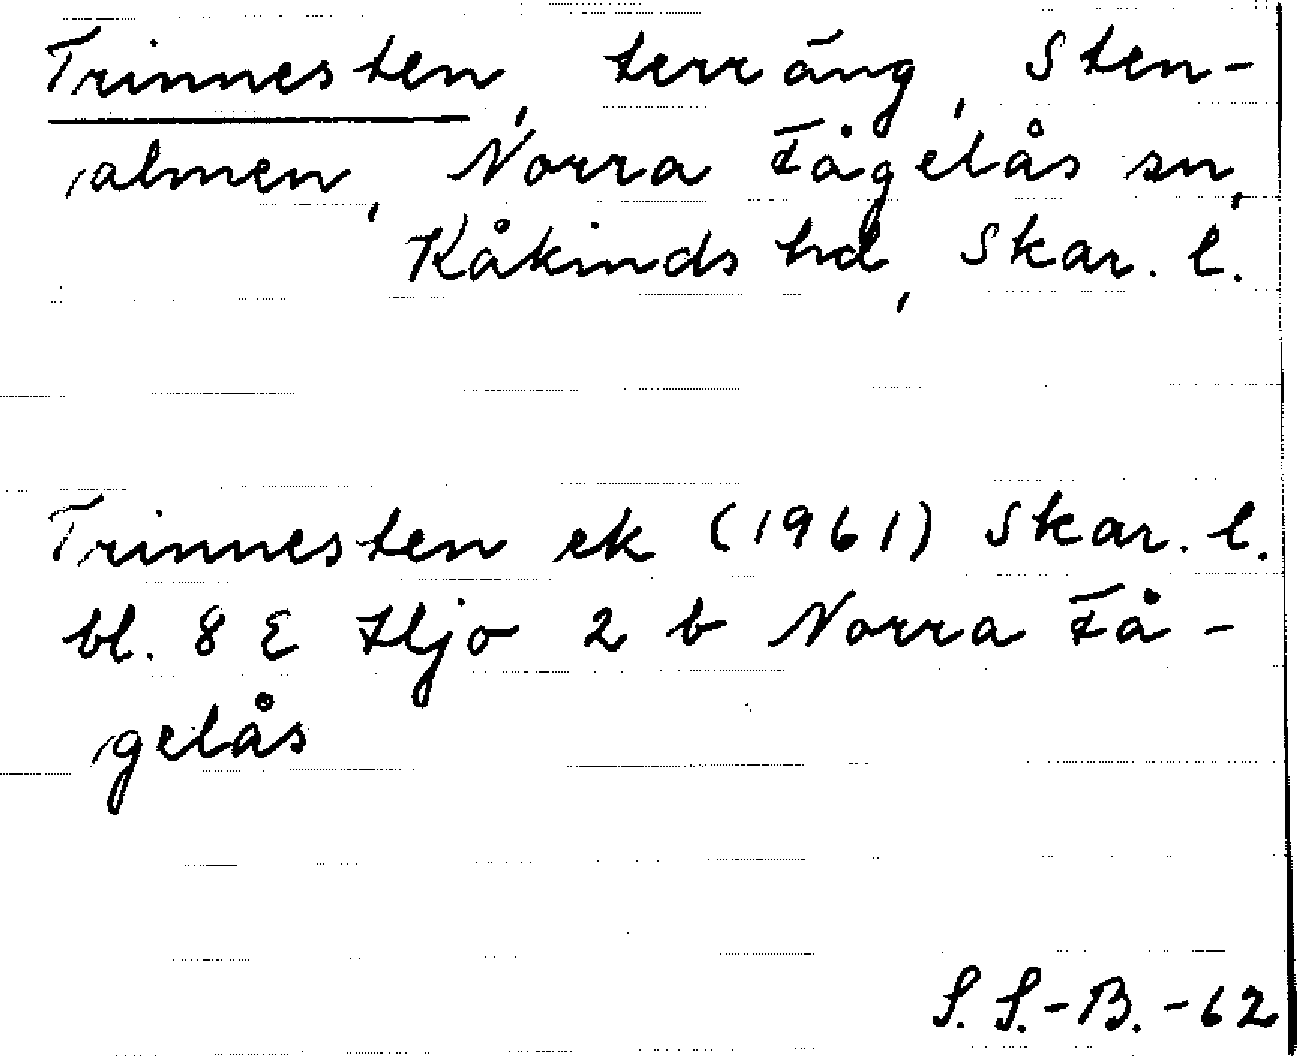 Trinnesten, terräng, Sten-
almen, Norra Fågelås sn,
Kåkinds hd, Skar. l.
Trinnesten ek (1961) Skar. l.
bl. 8 E Hjo 2 b Norra Få-
gelås
S. S.-B. -62